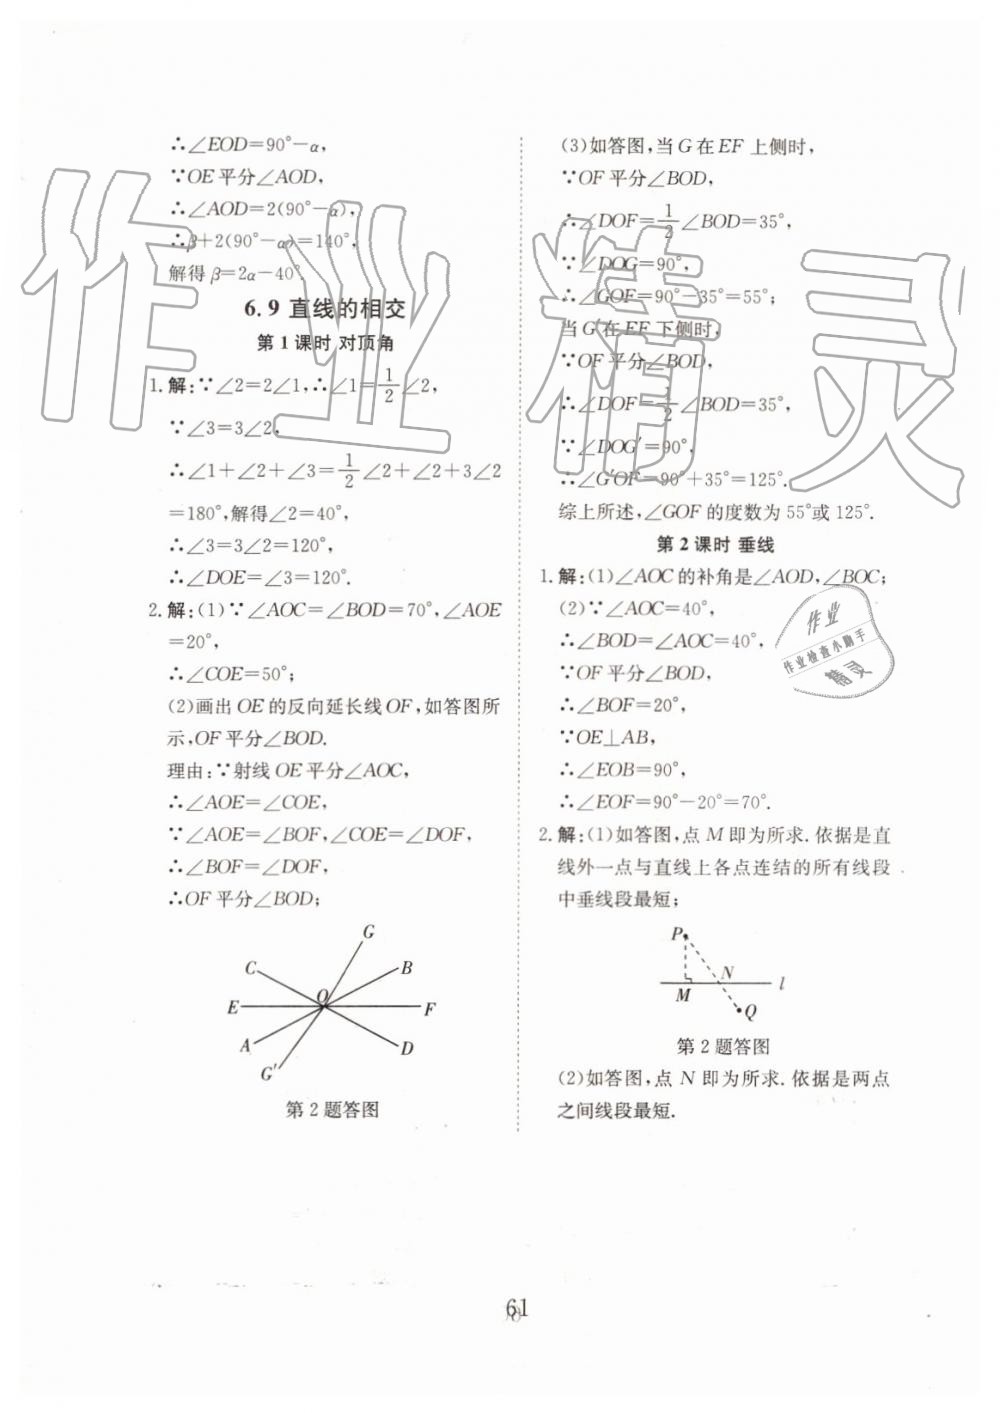 ∴∠EOD=90°-α,
∵OE平分∠AOD,
∴∠AOD=2(90°-α),
∴β+2(90°-α)=140°,
解得β=2α-40°.
6.9 直线的相交
第1课时 对顶角
1. 解:∵∠2=2∠1,∴∠1=1/2∠2,
∵∠3=3∠2,
∴∠1+∠2+∠3=1/2∠2+∠2+3∠2
=180°,解得∠2=40°,
∴∠3=3∠2=120°,
∴∠DOE=∠3=120°.
2. 解:(1)∵∠AOC=∠BOD=70°,∠AOE
=20°,
∴∠COE=50°;
(2)画出OE的反向延长线OF,如答图所
示,OF平分∠BOD.
理由:∵射线OE平分∠AOC,
∴∠AOE=∠COE,
∵∠AOE=∠BOF,∠COE=∠DOF,
∴∠BOF=∠DOF,
∴OF平分∠BOD;
G
C
B
O
E
F
A
D
G′
第2题答图
(3)如答图,当G在EF上侧时,
∵OF平分∠BOD,
∴∠DOF=1/2∠BOD=35°,
∵∠DOG=90°,
∴∠GOF=90°-35°=55°;
当G′在EF下侧时,
∵OF平分∠BOD,
∴∠DOF=1/2∠BOD=35°,
∵∠DOG′=90°,
∴∠G′OF=90°+35°=125°.
综上所述,∠GOF的度数为55°或125°.
第2课时 垂线
1. 解:(1)∠AOC的补角是∠AOD,∠BOC;
(2)∵∠AOC=40°,
∴∠BOD=∠AOC=40°,
∵OF平分∠BOD,
∴∠BOF=20°,
∵OE⊥AB,
∴∠EOB=90°,
∴∠EOF=90°-20°=70°.
2. 解:(1)如答图,点M即为所求.依据是直
线外一点与直线上各点连结的所有线段
中垂线段最短;
P
N
M
l
Q
第2题答图
(2)如答图,点N即为所求.依据是两点
之间线段最短.
61
作业精灵
作业
作业检查小助手
精灵